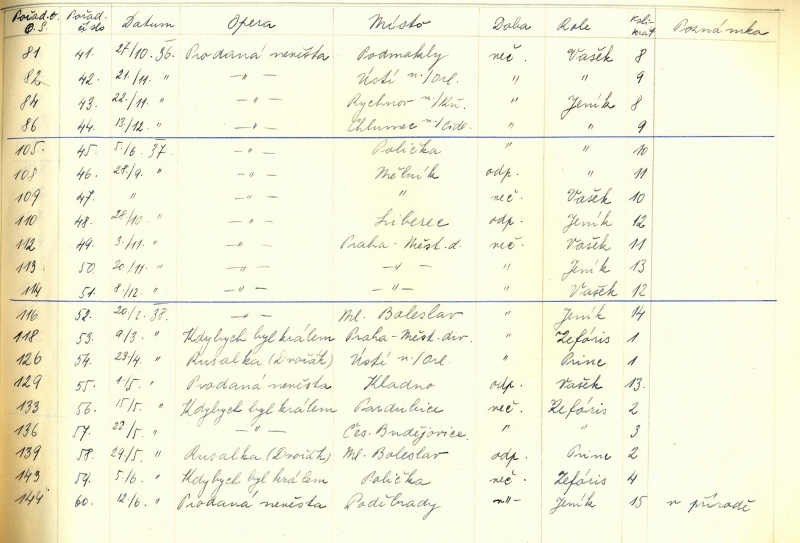 Pořad. č. O.S. Pořad. číslo Datum Opera Místo Doba Role Kolikrát Poznámka
81 41. 27/10. 36. Prodaná nevěsta Podmokly več. Vašek 8
82 42. 21/11. " —"— Ústí n./Orl. " " 9
84 43. 22/11. " —"— Rychnov n./Kn. " Jeník 8
86 44. 13/12. " —"— Chlumec n./Cidl. " " 9
105. 45. 5/6. 37. —"— Polička " " 10
108 46. 28/9. " —"— Mělník odp. " 11
109 47. " —"— " več. Vašek 10
110 48. 28/10. " —"— Liberec odp. Jeník 12
112 49. 3/11. " —"— Praha-Měst. d. več. Vašek 11
113. 50. 20/11. " —"— —"— " Jeník 13
114 51. 8/12. " —"— —"— " Vašek 12
116 52. 20/2. 38. —"— Ml. Boleslav " Jeník 14
118 53. 9/3. " Kdybych byl králem Praha-Měst. div. " Zefóris 1
126 54. 23/4. " Rusalka (Dvořák) Ústí n./Orl. " Princ 1
129 55. 1/5. " Prodaná nevěsta Kladno odp. Vašek 13.
133 56. 15/5. " Kdybych byl králem Pardubice več. Zefóris 2
136 57. 22/5. " —"— Čes. Budějovice. " " 3
139 58. 29/5. " Rusalka (Dvořák) Ml. Boleslav odp. Princ 2
143 59. 5/6. " Kdybych byl králem Polička več. Zefóris 4
144 60. 12/6. " Prodaná nevěsta Poděbrady —"— Jeník 15 v přírodě